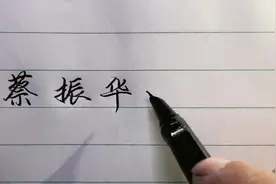 蔡振华